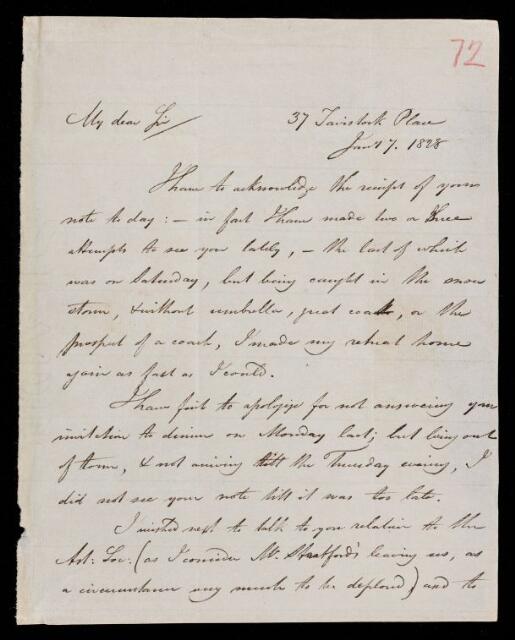 72
My dear Sir
37 Tavistock Place
Jany 7. 1828
I have to acknowledge the receipt of your
note to day: – in fact I have made two or three
attempts to see you lately, – the last of which
was on Saturday, but being caught in the snow
storm, & without umbrella, great coat, or the
prospect of a coach, I made my retreat home
again as fast as I could.
I have first to apologize for not answering your
invitation to dinner on Monday last; but being out
of town, & not arriving till the Thursday evening, I
did not see your note till it was too late.
I wished next to talk to you relative to the
Ast: Soc: (as I consider Mr. Stratford's leaving us, as
a circumstance very much to be deplored) and to